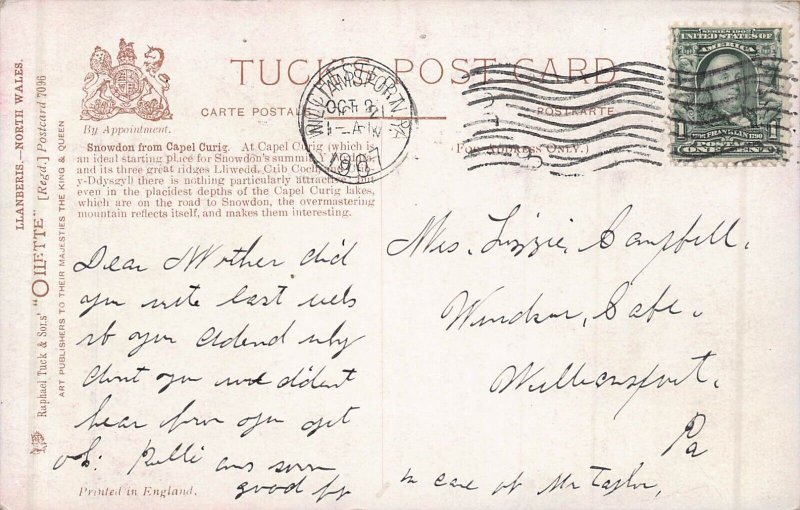 LLANBERIS.—NORTH WALES.
Raphael Tuck & Sons' "OILETTE" [Regd.] Postcard 7096
ART PUBLISHERS TO THEIR MAJESTIES THE KING & QUEEN
By Appointment.
TUCK POST CARD
CARTE POSTALE POSTKARTE
(FOR ADDRESS ONLY.)
Snowdon from Capel Curig. At Capel Curig (which is
an ideal starting place for Snowdon's summit
and its three great ridges Lliwedd, Crib Coch
y-Ddysgyl) there is nothing particularly attractive, but
even in the placidest depths of the Capel Curig lakes,
which are on the road to Snowdon, the overmastering
mountain reflects itself, and makes them interesting.
WILLIAMSPORT, PA
OCT 2
1-AM
1907
SERIES 1902
UNITED STATES OF
AMERICA
FRANKLIN
Dear Mother did
you write last
why
dont you didant
hear from you yet
ans soon
good by
Mrs. Lizzie Campbell.
Windsor,
Williamsport.
Pa
in care of Mr Taylor,
Printed in England.